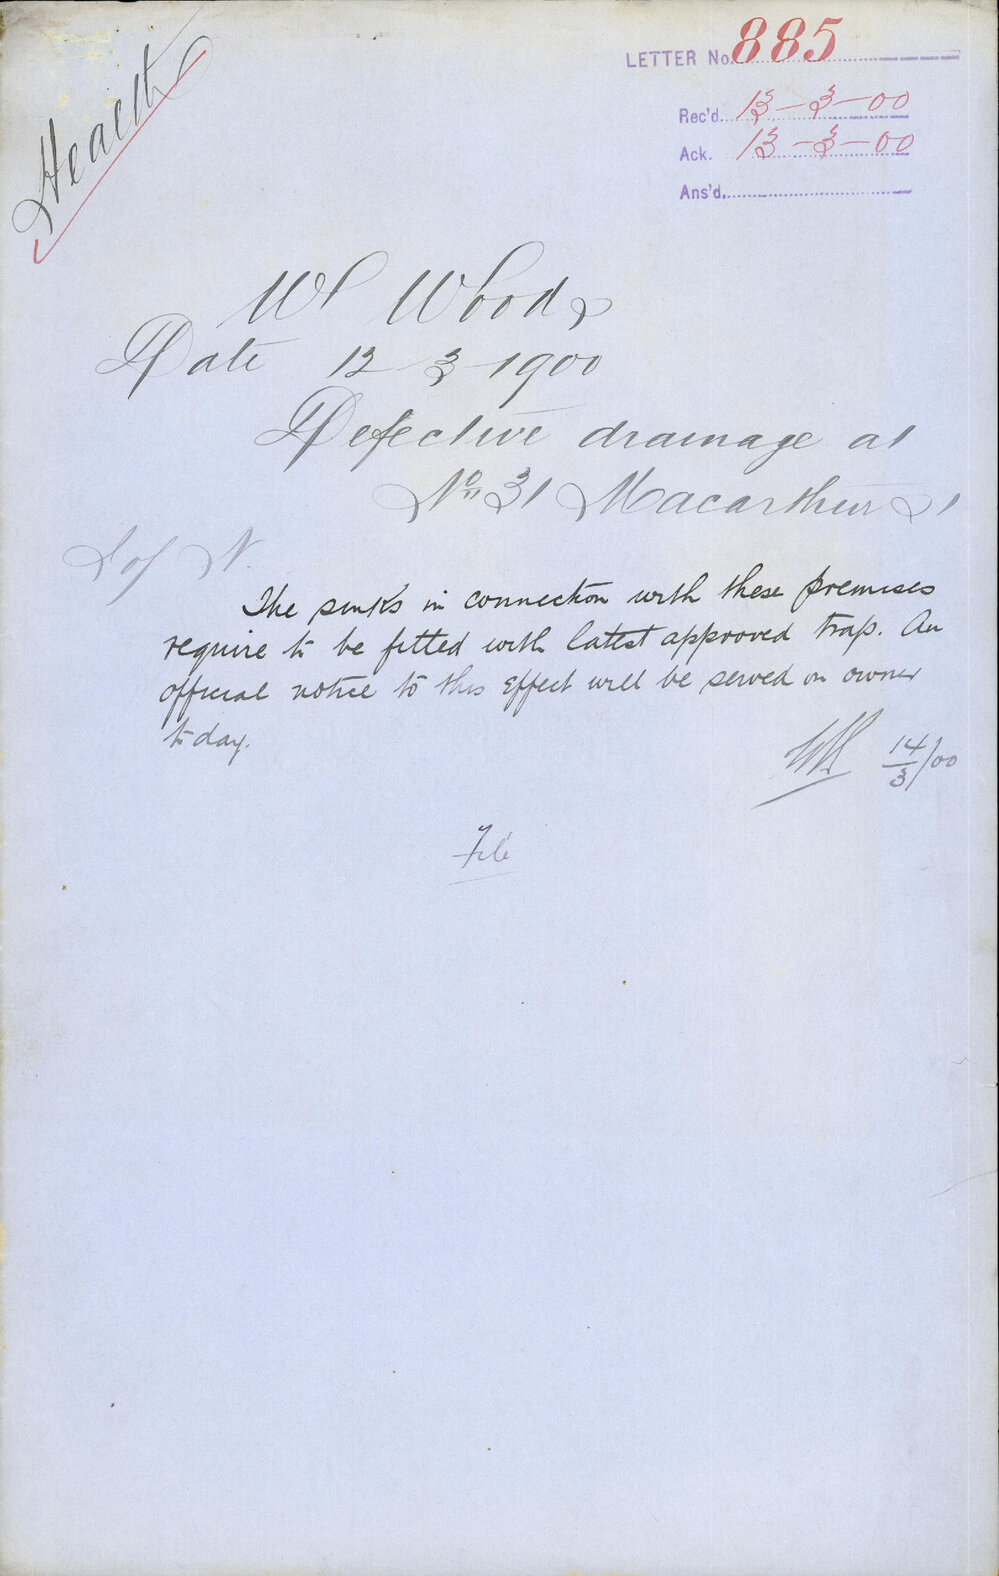 Health
LETTER No. 885
Rec'd. 13-3-00
Ack. 13-3-00
Ans'd.
W Woods
Date 12-3-1900
Defective drainage at
No 31 Macarthur St
I of N.
The sinks in connection with these premises
require to be fitted with latest approved trap. An
official notice to this effect will be served on owner
to day.
14/3/00
File